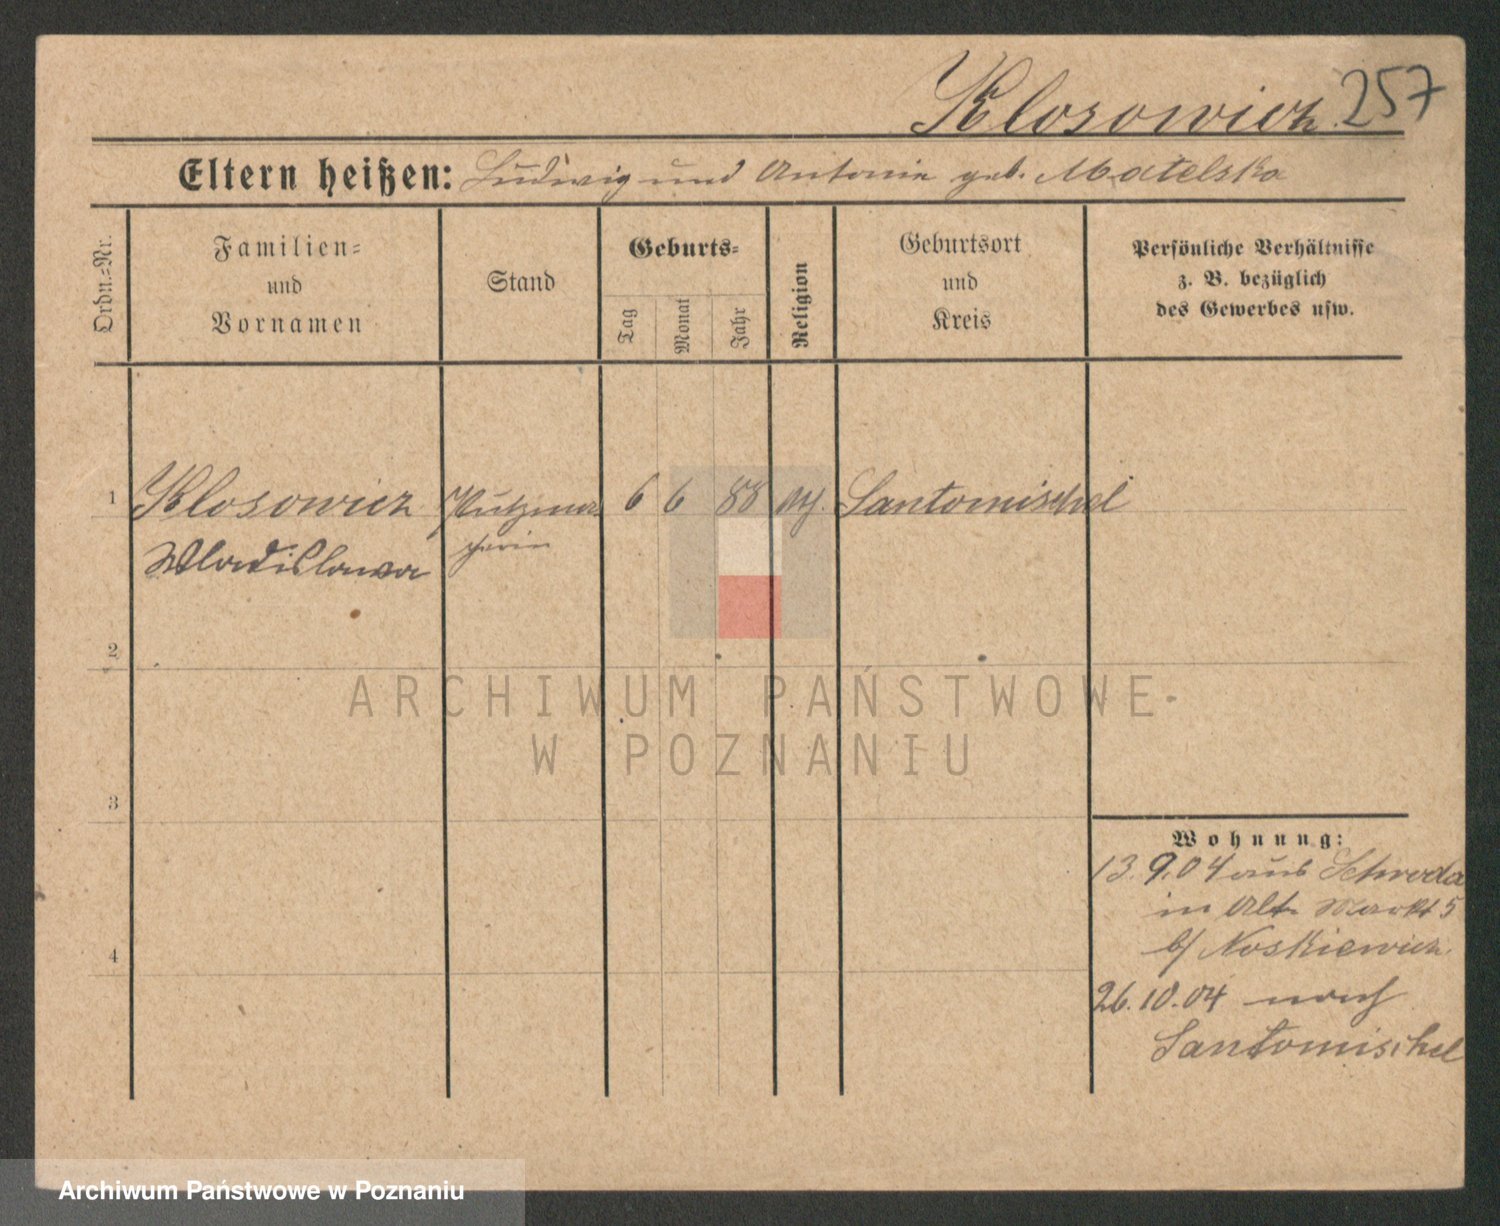 Klosowicz. 257
Eltern heißen: Ludwig und Antonie geb. Matelska
Ordn.=Nr.
Familien=
und
Vornamen
Stand
Geburts=
Tag
Monat
Jahr
Religion
Geburtsort
und
Kreis
Persönliche Verhältnisse
z. B. bezüglich
des Gewerbes usw.
1 Klosowicz Putzma- 6 6 88 Santomischel
Wladislawa cherin
2
3
4
Wohnung:
13.9.04 aus Schroda
in Alt. Markt 5
b/ Noskiewicz.
26.10.04 nach
Santomischel
ARCHIWUM PAŃSTWOWE
W POZNANIU
Archiwum Państwowe w Poznaniu